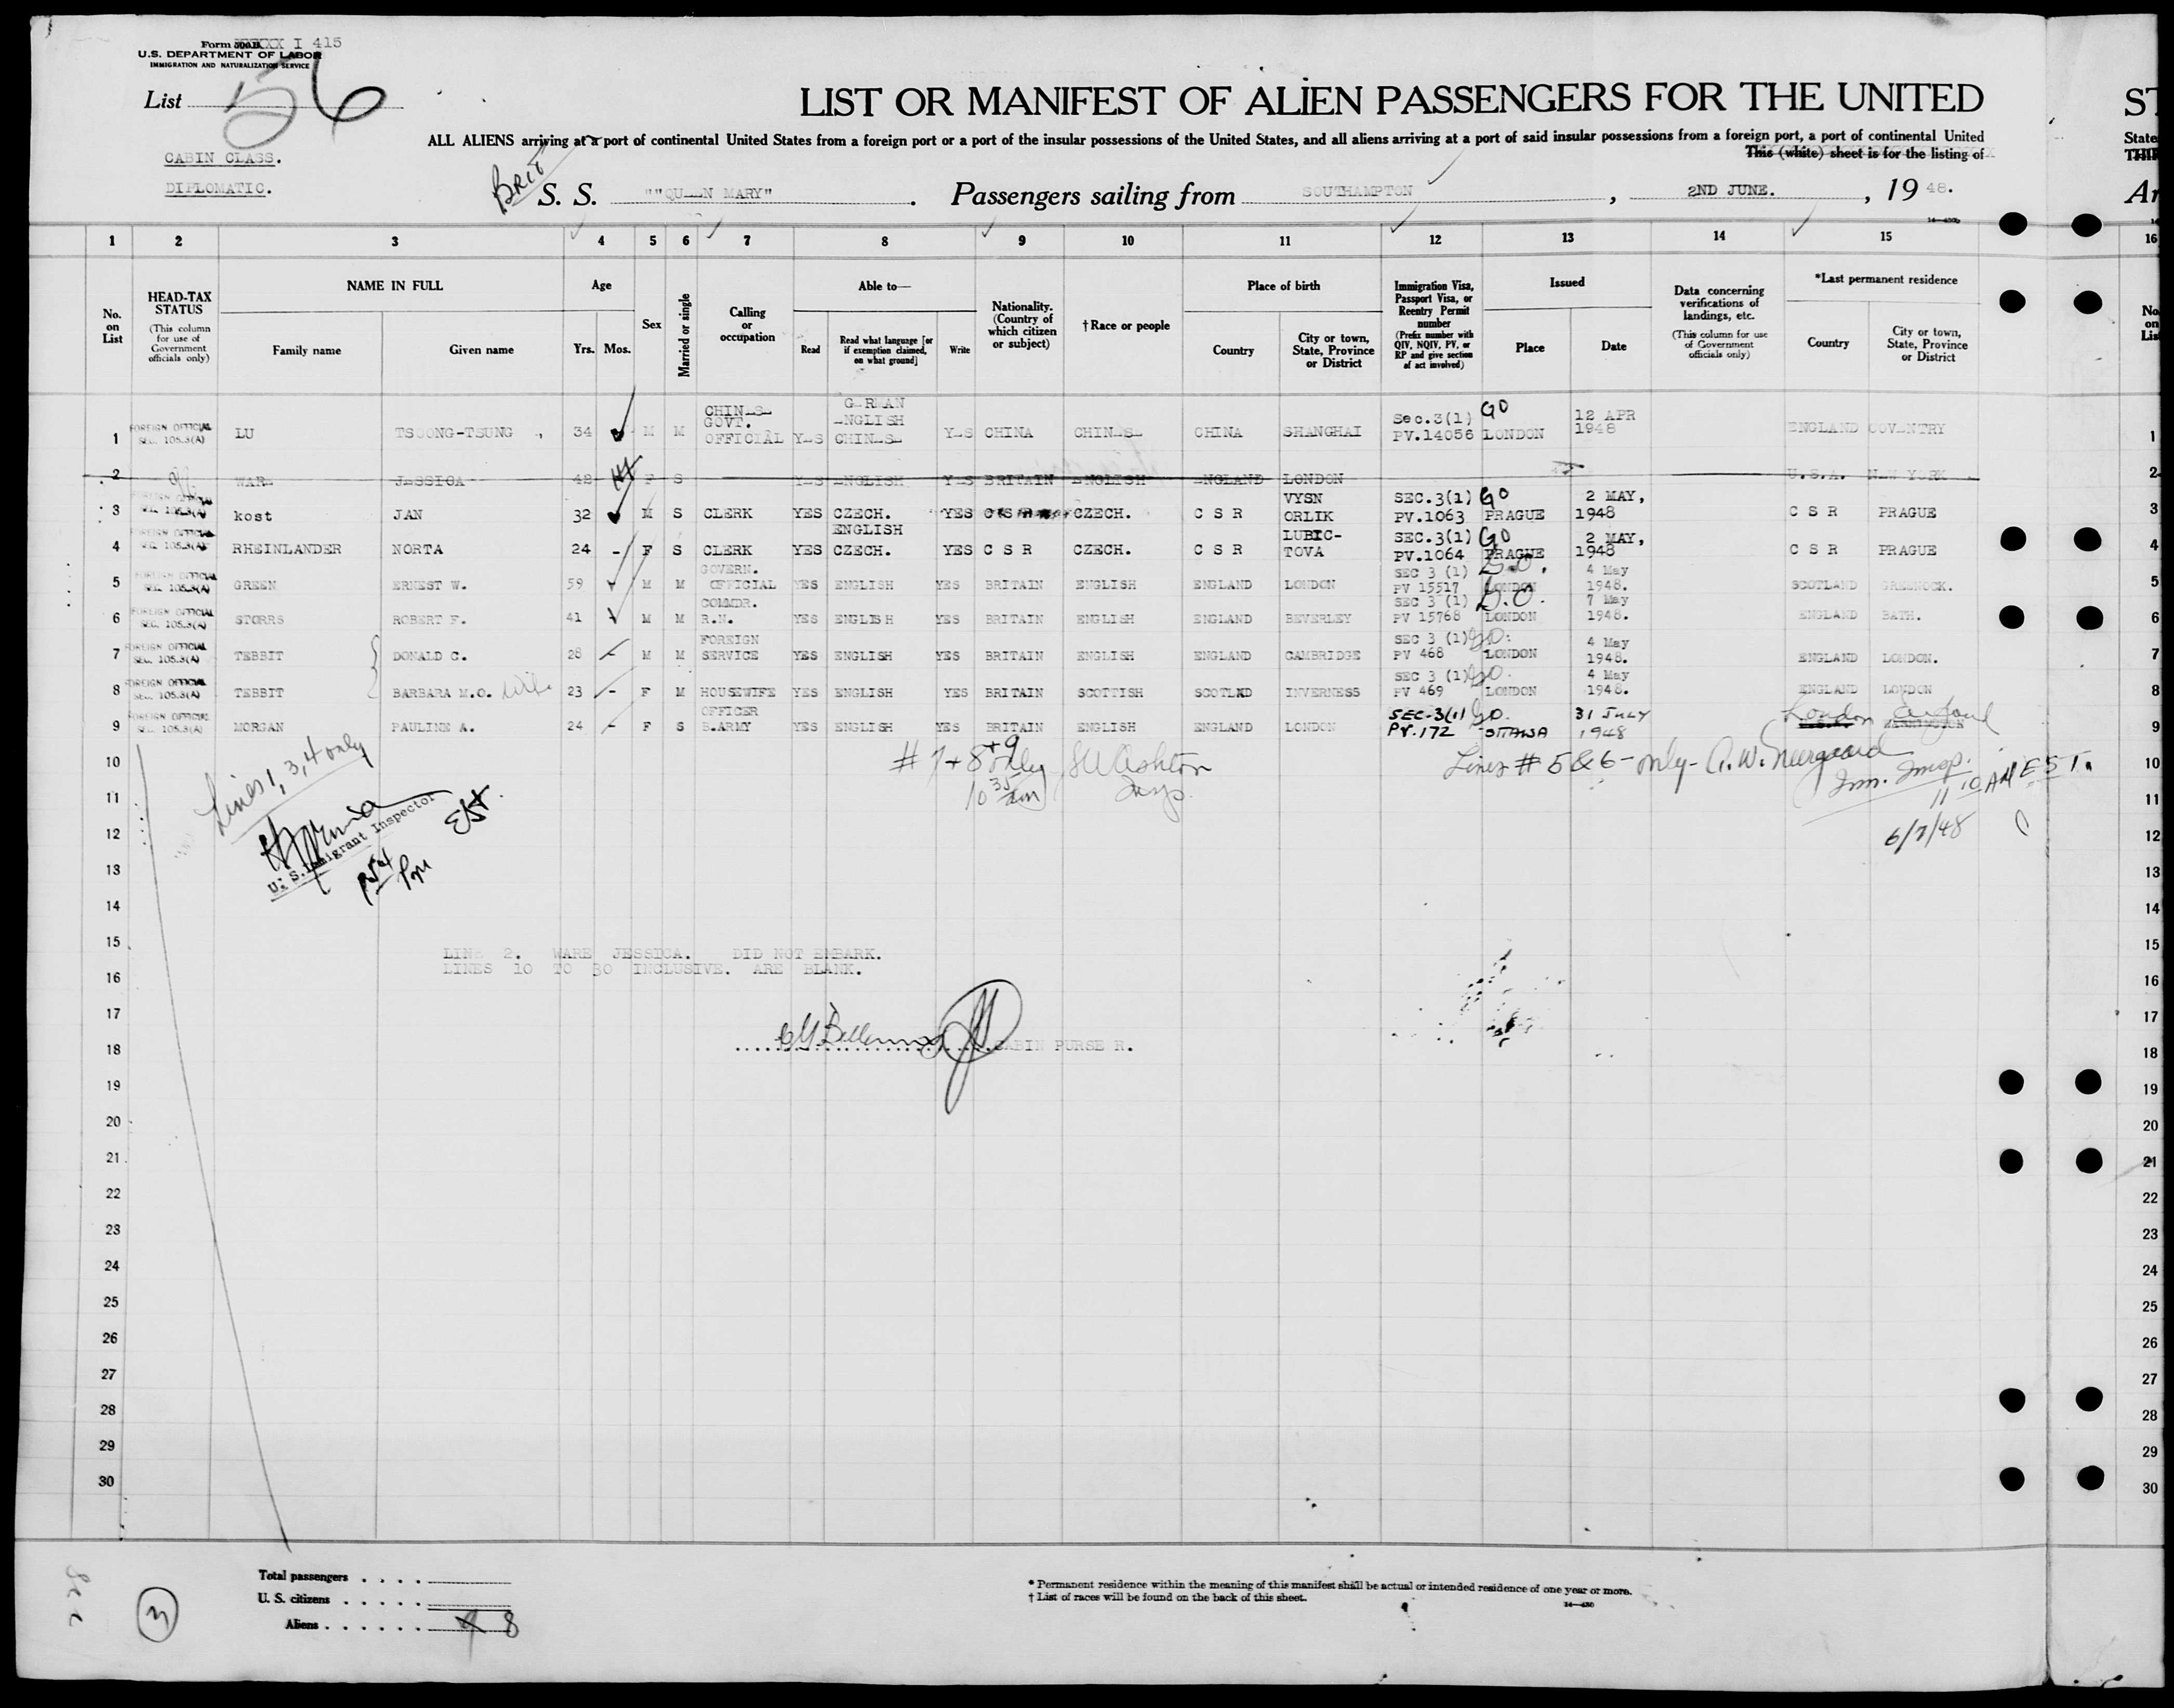 Form 500.B XXXXX I 415
U.S. DEPARTMENT OF LABOR
IMMIGRATION AND NATURALIZATION SERVICE
List 56
CABIN CLASS.
DIPLOMATIC.
LIST OR MANIFEST OF ALIEN PASSENGERS FOR THE UNITED
ALL ALIENS arriving at a port of continental United States from a foreign port or a port of the insular possessions of the United States, and all aliens arriving at a port of said insular possessions from a foreign port, a port of continental United
This (white) sheet is for the listing of
BRIT S. S. ""QU__N MARY". Passengers sailing from SOUTHAMPTON, 2ND JUNE., 19 48.
ST
State
THI
Ar
1 2 3 4 5 6 7 8 9 10 11 12 13 14 15 16
No. on List
HEAD-TAX STATUS
(This column for use of Government officials only)
NAME IN FULL
Family name
Given name
Age
Yrs. Mos.
Sex
Married or single
Calling or occupation
Able to—
Read
Read what language [or if exemption claimed, on what ground]
Write
Nationality. (Country of which citizen or subject)
†Race or people
Place of birth
Country
City or town, State, Province or District
Immigration Visa, Passport Visa, or Reentry Permit number
(Prefix number with QIV, NQIV, PV, or RP and give section of act involved)
Issued
Place
Date
Data concerning verifications of landings, etc.
(This column for use of Government officials only)
*Last permanent residence
Country
City or town, State, Province or District
No. on List
1 FOREIGN OFFICIAL SEC. 105.3(A) LU TSOONG-TSUNG , 34 M M CHIN_S_ GOVT. OFFICIAL Y_S G_RMAN _NGLISH CHIN_S_ Y_S CHINA CHIN_S_ CHINA SHANGHAI Sec.3(1) PV.14056 GO LONDON 12 APR 1948 ENGLAND COV_NTRY 1
2 WAR_ J_SSICA 42 F S Y_S _NGLISH Y_S BRITAIN _NGLISH _NGLAND LONDON U.S.A. N_W YORK 2
3 FOREIGN OFFICIAL SEC. 105.3(A) kost JAN 32 M S CLERK YES CZECH. YES C S R CZECH. C S R VYSN ORLIK SEC.3(1) PV.1063 GO PRAGUE 2 MAY, 1948 C S R PRAGUE 3
4 FOREIGN OFFICIAL SEC. 105.3(A) RHEINLANDER NORTA 24 - F S CLERK YES ENGLISH CZECH. YES C S R CZECH. C S R LUBIC-TOVA SEC.3(1) PV.1064 GO PRAGUE 2 MAY, 1948 C S R PRAGUE 4
5 FOREIGN OFFICIAL SEC. 105.3(A) GREEN ERNEST W. 59 M M GOVERN. OFFICIAL YES ENGLISH YES BRITAIN ENGLISH ENGLAND LONDON SEC 3 (1) PV 15517 G.O. LONDON 4 May 1948. SCOTLAND GREENOCK. 5
6 FOREIGN OFFICIAL SEC. 105.3(A) STORRS ROBERT F. 41 M M COMMDR. R.N. YES ENGLISH YES BRITAIN ENGLISH ENGLAND BEVERLEY SEC 3 (1) PV 15768 G.O. LONDON 7 May 1948. ENGLAND BATH. 6
7 FOREIGN OFFICIAL SEC. 105.3(A) TEBBIT DONALD C. 28 - M M FOREIGN SERVICE YES ENGLISH YES BRITAIN ENGLISH ENGLAND CAMBRIDGE SEC 3 (1) PV 468 GO. LONDON 4 May 1948. ENGLAND LONDON. 7
8 FOREIGN OFFICIAL SEC. 105.3(A) TEBBIT BARBARA M.O. Wife 23 - F M HOUSEWIFE YES ENGLISH YES BRITAIN SCOTTISH SCOTLND INVERNESS SEC 3 (1) PV 469 GO. LONDON 4 May 1948. ENGLAND LONDON 8
9 FOREIGN OFFICIAL SEC. 105.3(A) MORGAN PAULINE A. 24 - F S OFFICER B.ARMY YES ENGLISH YES BRITAIN ENGLISH ENGLAND LONDON SEC.3(1) PV.172 GO. OTTAWA 31 JULY 1948 London England WASHINGTON 9
10 Lines 1, 3, 4 only # 7 + 8 + 9 only SWAshton Insp. Lines # 5 & 6 - only - A.W. Neergaard Imm. Insp. 10
11 10 35 am 11 10 AM E S T. 11
12 U.S. Immigrant Inspector EST 6/7/48 12
13 pm 13
14 14
15 15
LINE 2. WARE JESSICA. DID NOT EMBARK.
LINES 10 TO 30 INCLUSIVE. ARE BLANK.
16 16
17 17
18 CABIN PURSE R. 18
19 19
20 20
21 21
22 22
23 23
24 24
25 25
26 26
27 27
28 28
29 29
30 30
Total passengers
U. S. citizens
Aliens 9 8
3
* Permanent residence within the meaning of this manifest shall be actual or intended residence of one year or more.
† List of races will be found on the back of this sheet.
14—430